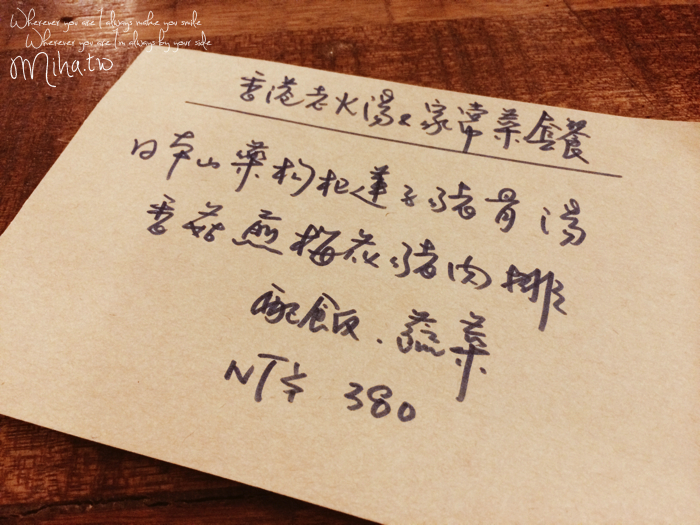 Wherever you are I always make you smile
Wherever you are I'm always by your side
Miha.tw
香港老火湯&家常菜套餐
日本山藥枸杞蓮子豬骨湯
香菇煎梅花豬肉排
配飯.蔬菜
NT$ 380